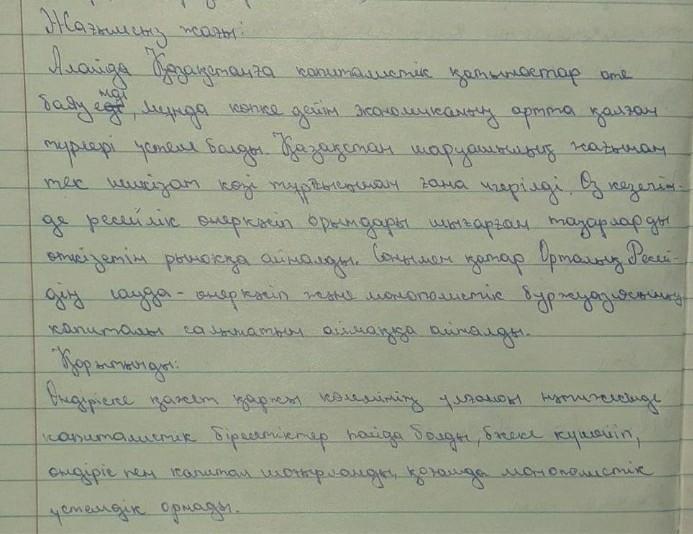 Жағымсыз жағы:
Алайда Қазақстанға капиталистік қатынастар өте
баяу енді, мұнда көпке дейін экономиканың артта қалған
түрлері үстем болды. Қазақстан шаруашылық жағынан
тек шикізат көзі тұрғысынан ғана игерілді. Өз кезегін-
де ресейлік өнеркәсіп орындары шығарған тауарларды
өткізетін рынокқа айналды. Сонымен қатар Орталық Ресей-
дің сауда - өнеркәсіп және монополистік буржуазиясының
капиталы салынатын аймаққа айналды.
Қорытынды:
Өндіріске қажет қаржы көлемінің ұлғаюы нәтижесінде
капиталистік бірлестіктер пайда болды, бәсеке күшейіп,
өндіріс пен капитал шоғырланды, қоғамда монополистік
үстемдік орнады.